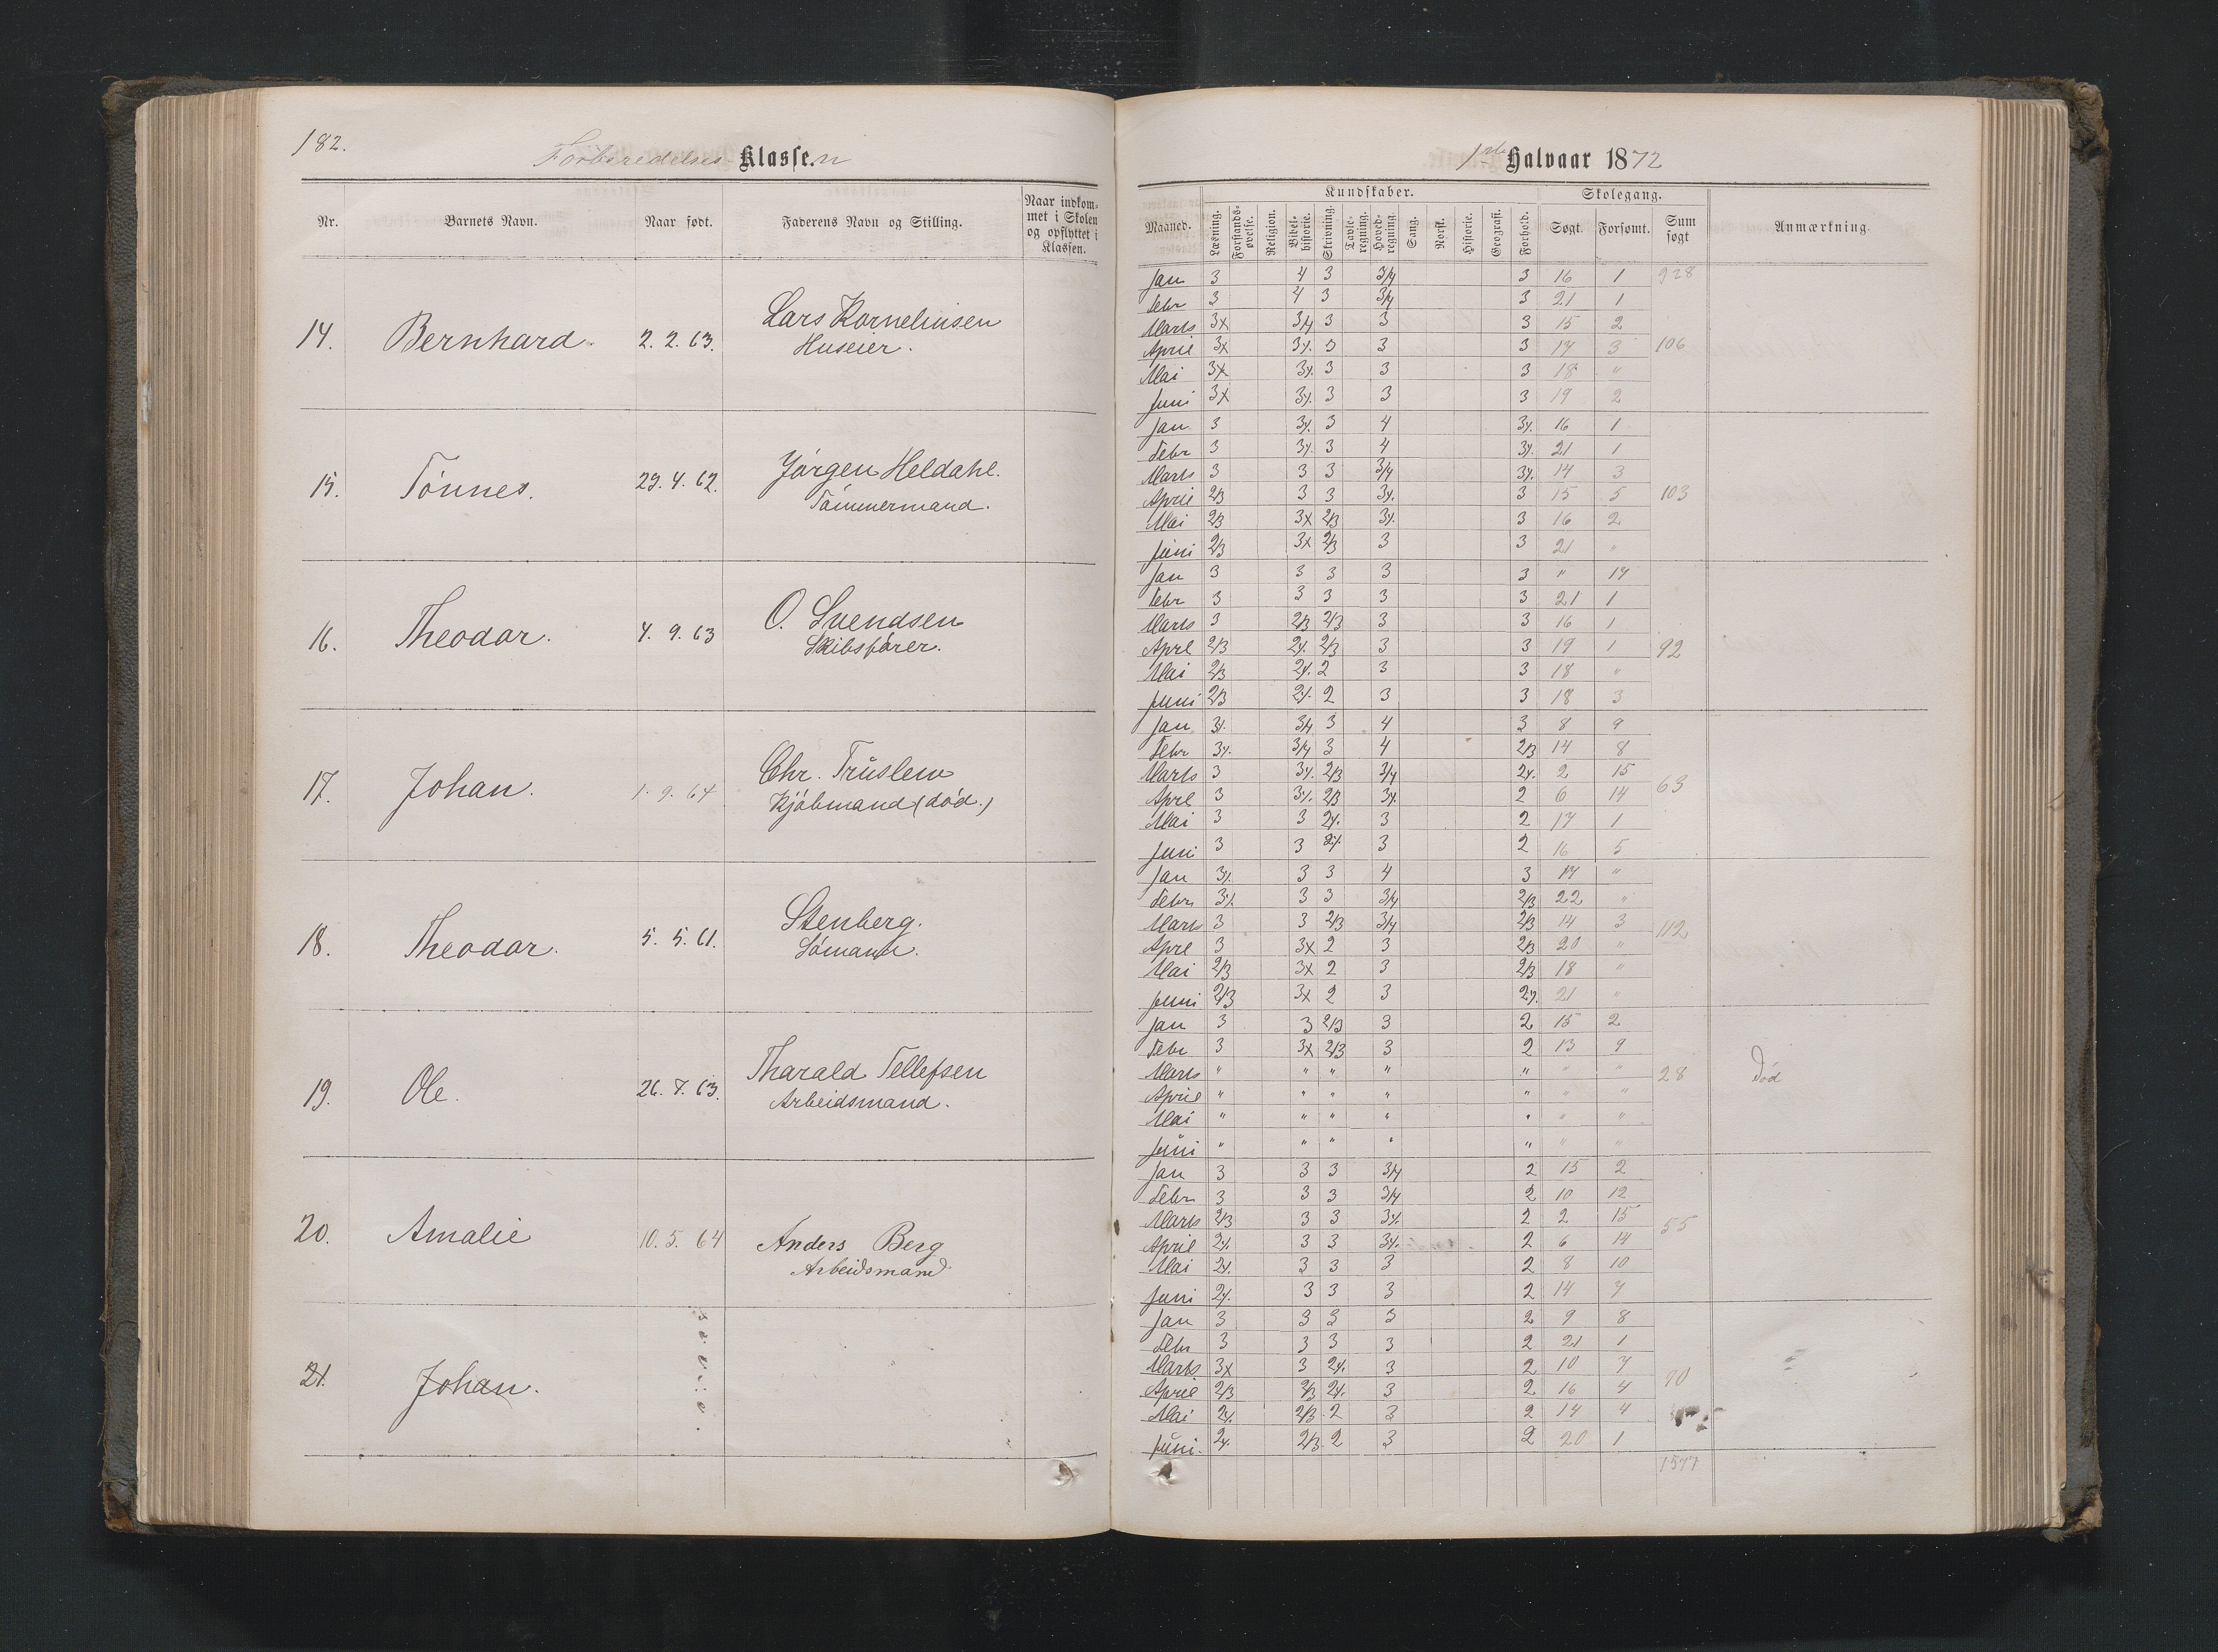 182.
Forberedelses Klassen
Nr. Barnets Navn. Naar født. Faderens Navn og Stilling. Naar indkommet i Skolen og opflyttet i Klassen.
14. Bernhard. 2. 2. 63. Lars Kornelinsen
Huseier.
15. Tönnes. 29. 4. 62. Jörgen Heldahl.
Tömmermand.
16. Theodor. 4. 9. 63 O. Svendsen
Skibsförer.
17. Johan. 1. 9. 64 Chr. Truslew
Kjöbmand (död.)
18. Theodor. 5. 5. 61. Stenberg.
Sömand.
19. Ole. 26. 7. 63. Tharald Tellefsen
Arbeidsmand.
20. Amalie 10. 5. 64 Anders Berg
Arbeidsmand
21. Johan.
1ste Halvaar 1872
Kundskaber. Skolegang.
Maaned. Læsning. Forstandsøvelse. Religion. Bibelhistorie. Skrivning. Tavleregning. Hovedregning. Sang. Norsk. Historie. Geografi. Forhold. Søgt. Forsømt. Sum søgt Anmærkning.
Jan 3 4 3 3/4 3 16 1 928
Febr 3 4 3 3/4 3 21 1
Marts 3x 3/4 3 3 3 15 2
April 3x 3/. 3 3 3 17 3 106
Mai 3x 3/. 3 3 3 18 "
Juni 3x 3/. 3 3 3 19 2
Jan 3 3/. 3 4 3/. 16 1
Febr 3 3/. 3 4 3/. 21 1
Marts 3 3 3 3/4 3/. 14 3
April 2/3 3 3 3/. 3 15 5 103
Mai 2/3 3x 2/3 3/. 3 16 2
Juni 2/3 3x 2/3 3 3 21 "
Jan 3 3 3 3 3 " 17
Febr 3 3 3 3 3 21 1
Marts 3 2/3 2/3 3 3 16 1
Aprl 2/3 2/. 2/3 3 3 19 1 92
Mai 2/3 2/. 2 3 3 18 "
Juni 2/3 2/. 2 3 3 18 3
Jan 3/. 3/4 3 4 3 8 9
Febr 3/. 3/4 3 4 2/3 14 8
Marts 3 3/. 2/3 3/4 2/. 2 15
Aprl 3 3/. 2/3 3/. 2 6 14 63
Mai 3 3 2/. 3 2 17 1
Juni 3 3 2/. 3 2 16 5
Jan 3/. 3 3 4 3 17 "
Febr 3/. 3 3 3/4 2/3 22 "
Marts 3 3 2/3 3/4 2/3 14 3 112
Aprl 3 3x 2 3 2/3 20 "
Mai 2/3 3x 2 3 2/3 18 "
Juni 2/3 3x 2 3 2/. 21 "
Jan 3 3 2/3 3 2 15 2
Febr 3 3x 2/3 3 2 13 9
Marts " " " " " " " 28 Död
April " " " " " " "
Mai " " " " " " "
Juni " " " " " " "
Jan 3 3 3 3/4 2 15 2
Febr 3 3 3 3/4 2 10 12
Marts 2/3 3 3 3/. 2 2 15 55
April 2/. 3 3 3/. 2 6 14
Mai 2/. 3 3 3 2 8 10
Juni 2/. 3 3 3 2 14 7
Jan 3 3 3 3 2 9 8
Febr 3 3 3 3 2 21 1
Marts 3x 3 2/. 3 2 10 7
April 2/3 2/3 2/. 3 2 16 4 90
Mai 2/. 2/3 2 3 2 14 4
Juni. 2/. 2/3 2 3 2 20 1
1577